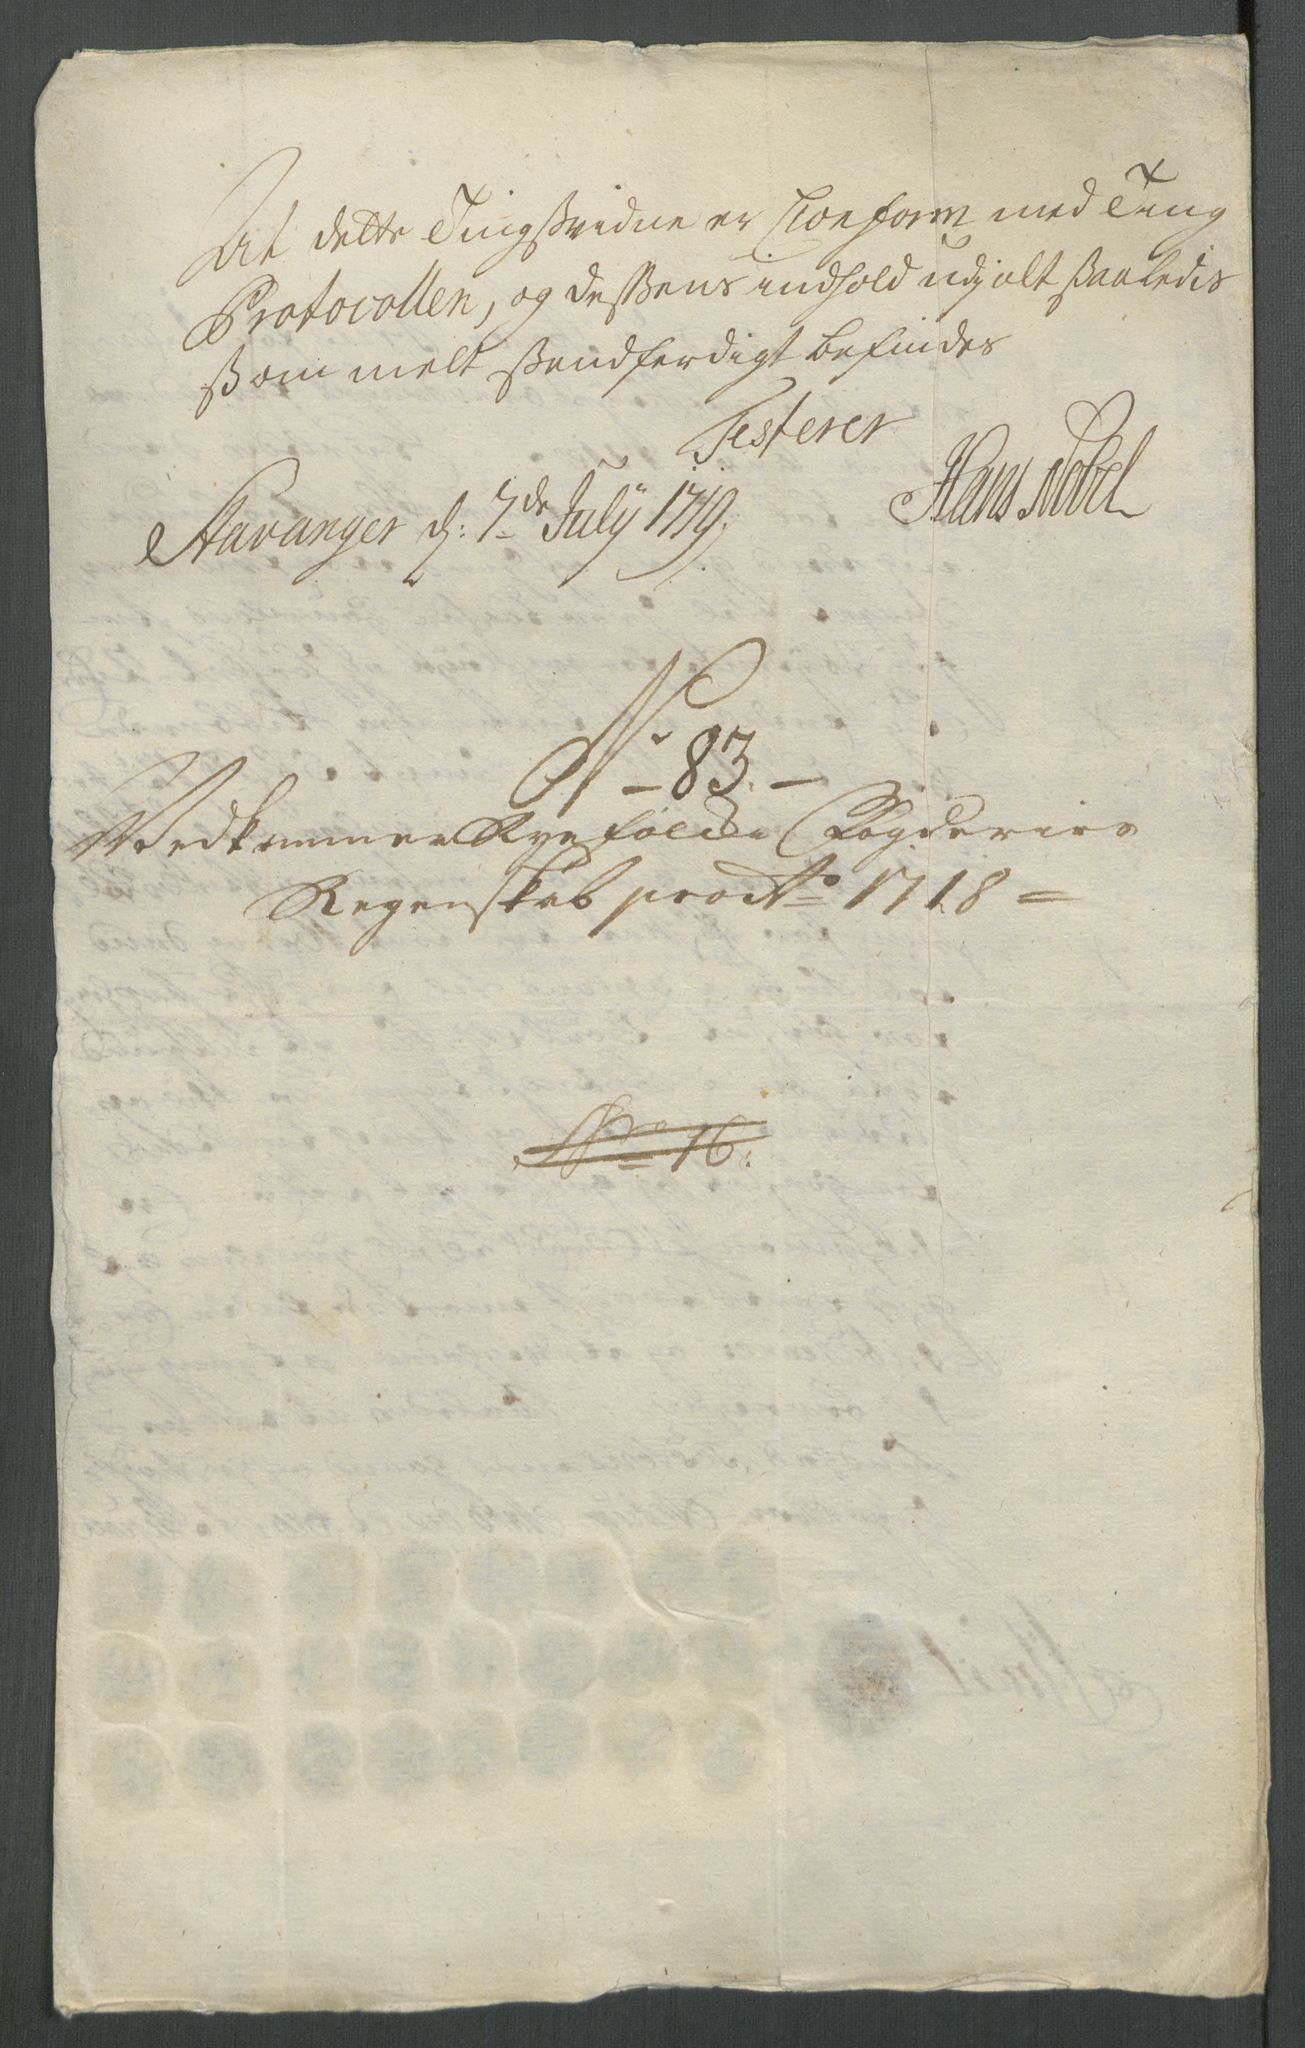 At dette Tingsvidne er Conform med Ting
Protocollen, og dessens indhold udj alt saaledis
som melt sandferdigt befindes
Testerer
Hans Nobel
Stavanger d: 7de July 1719.
No 83.
Vedkommer Ryefölcke Fogderies
Regenskab pro Ao 1718
No 16: